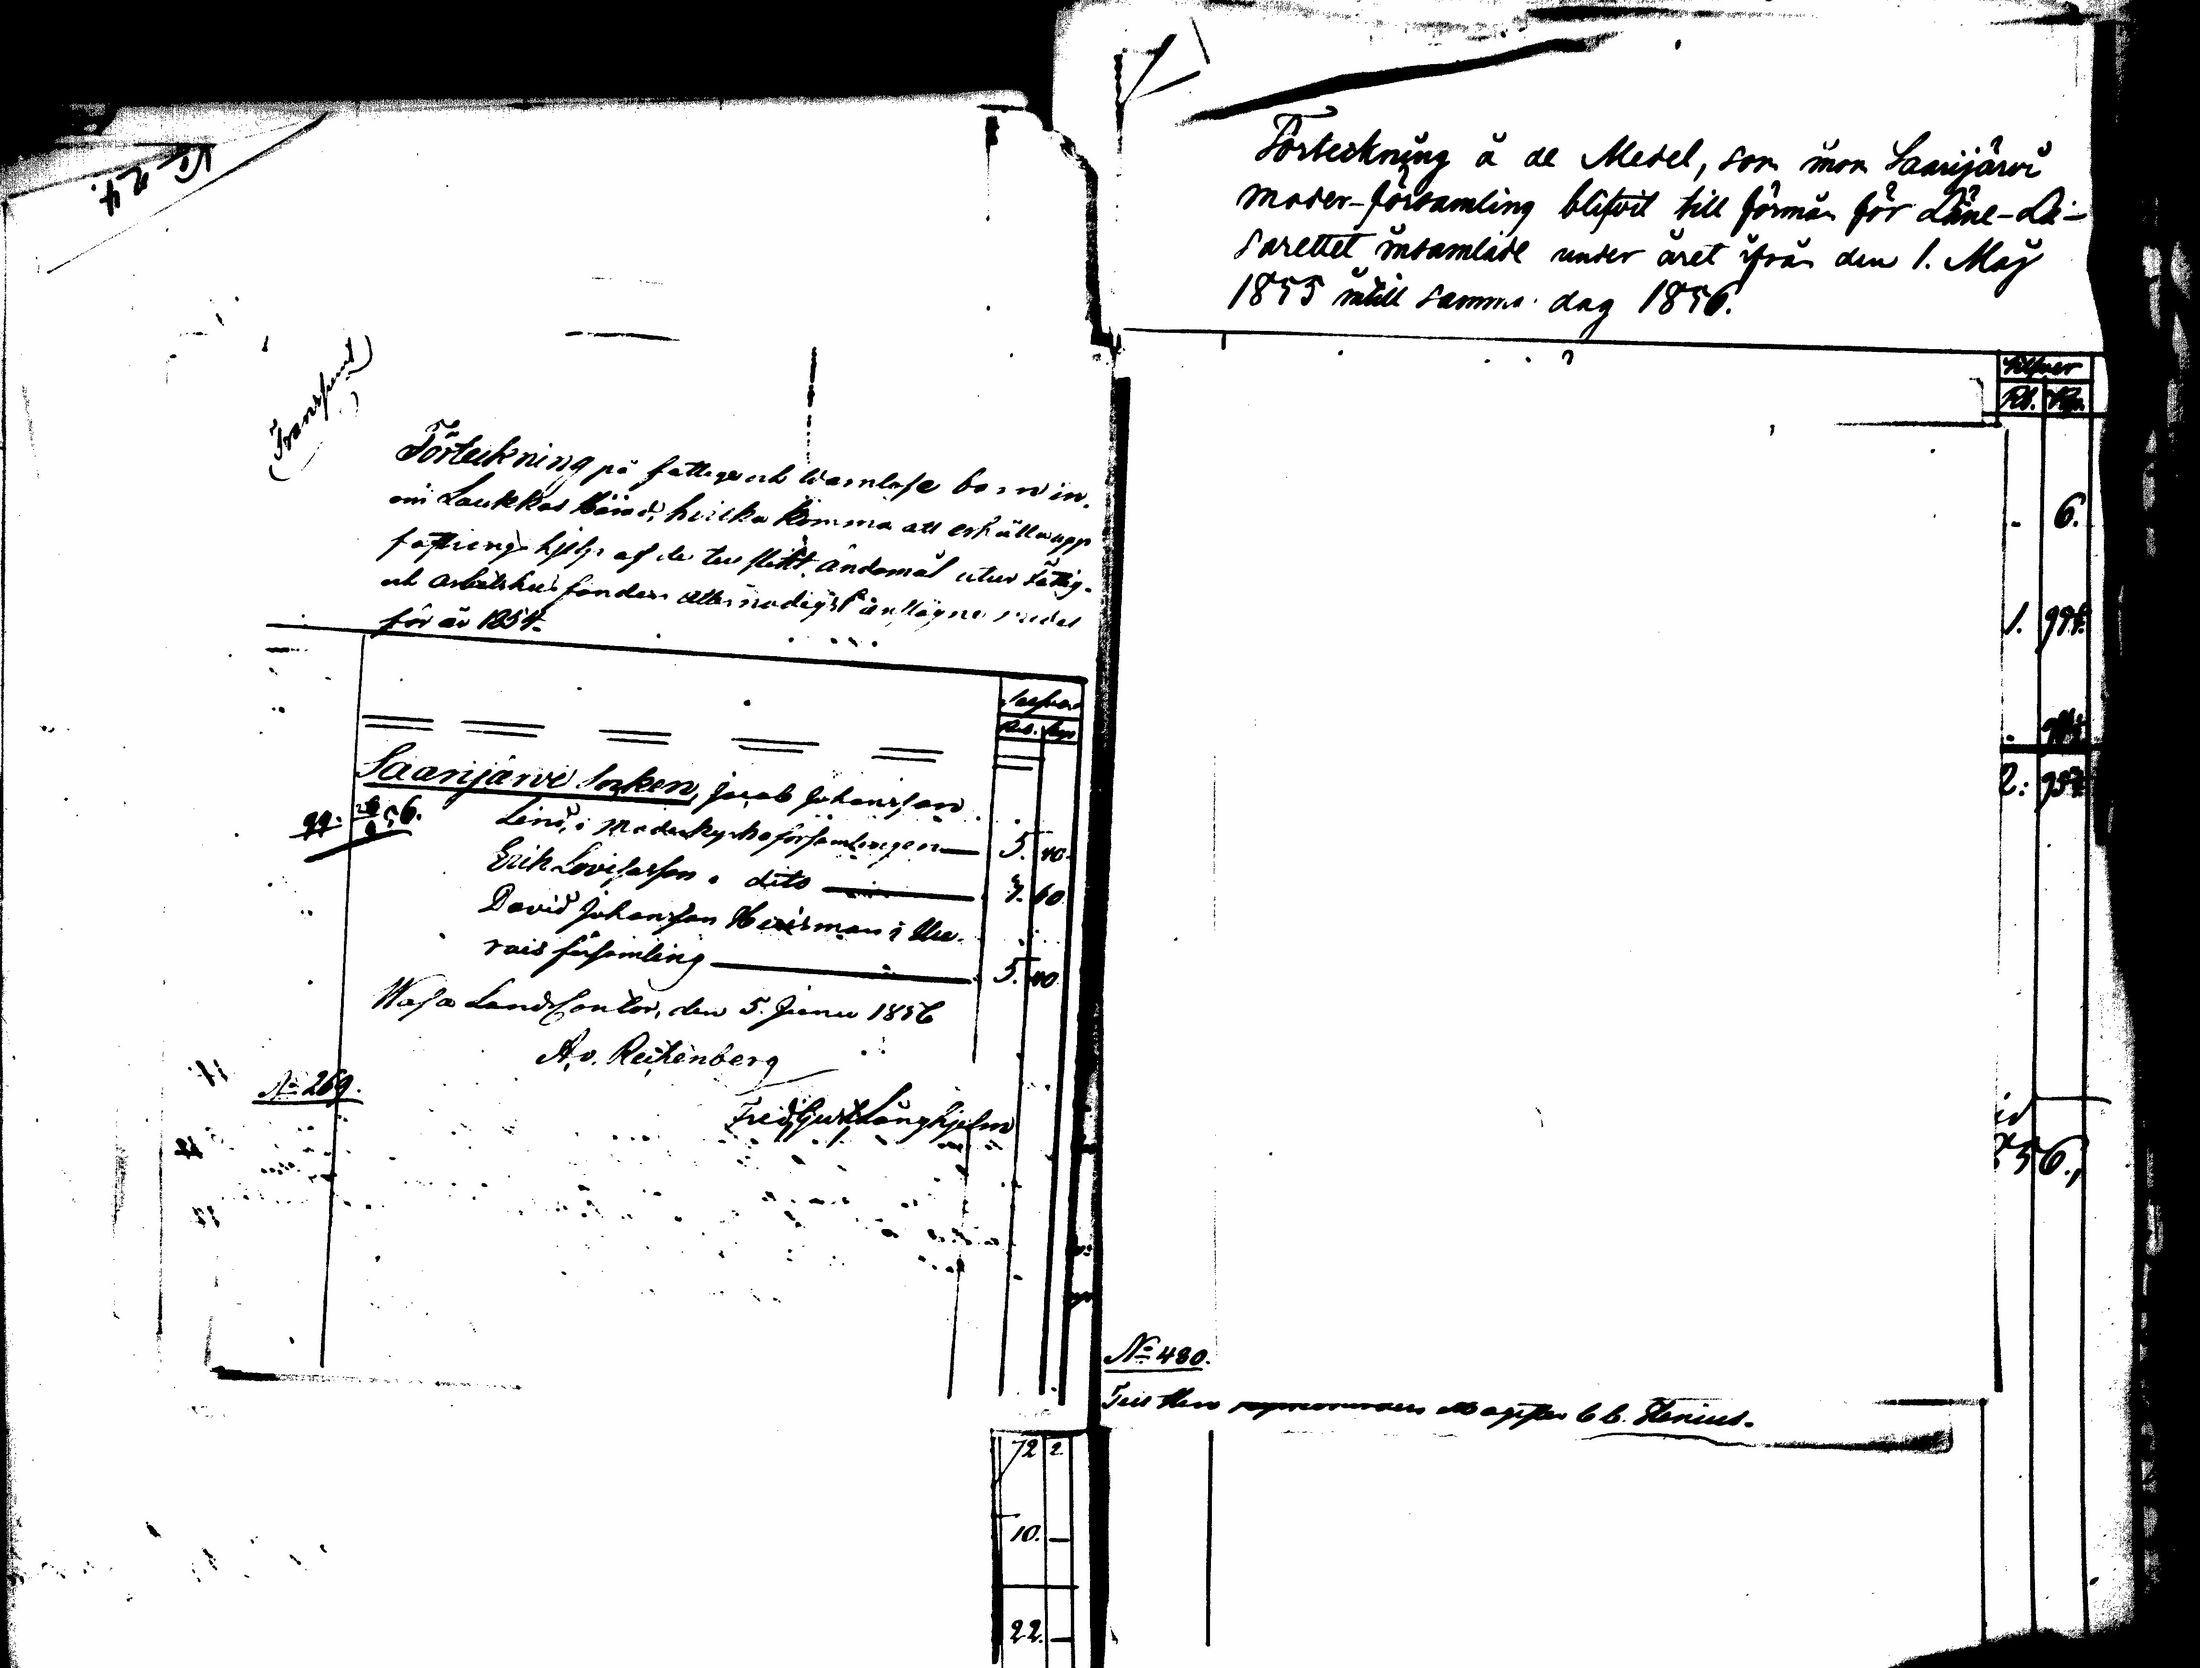 No 24.
(Transsumt)
Förteckning på fattige och wärnlöse barn in-
om Laukkas Härad, hvilka komma att erhålla upp
fostrings hjelp af de till slikt ändamål utur Fattig-
och arbetshus fonden allernådigst anslagne medel
för år 1854.
Silfver
Rub. Kop.
Saarijärvi Socken, Jacob Johansson
qq. 56.
Lind, i Moderkyrkoförsamlingen — 5. 40.
Erik Lovisasson i dito — 60.
David Johansson Heisman i Uu-
rais församling — 5. 40
Wasa LandsContor, den 5. Junii 1856
A. v. Reitenberg
No 269.
Fred. Gust. Långhjelm
72 2
10. —
22. —
Förteckning å de Medel, som inom Saarijärvi
moder-församling blifvit till förmån för Läne-La-
sarettet insamlade under året ifrån den 1. Maj
1855 intill samma dag 1856.
Silfver
Rb. Kop.
- 6.
1.
2:
56.,
No 480.
Till Herr Magister C. C. Stenius.